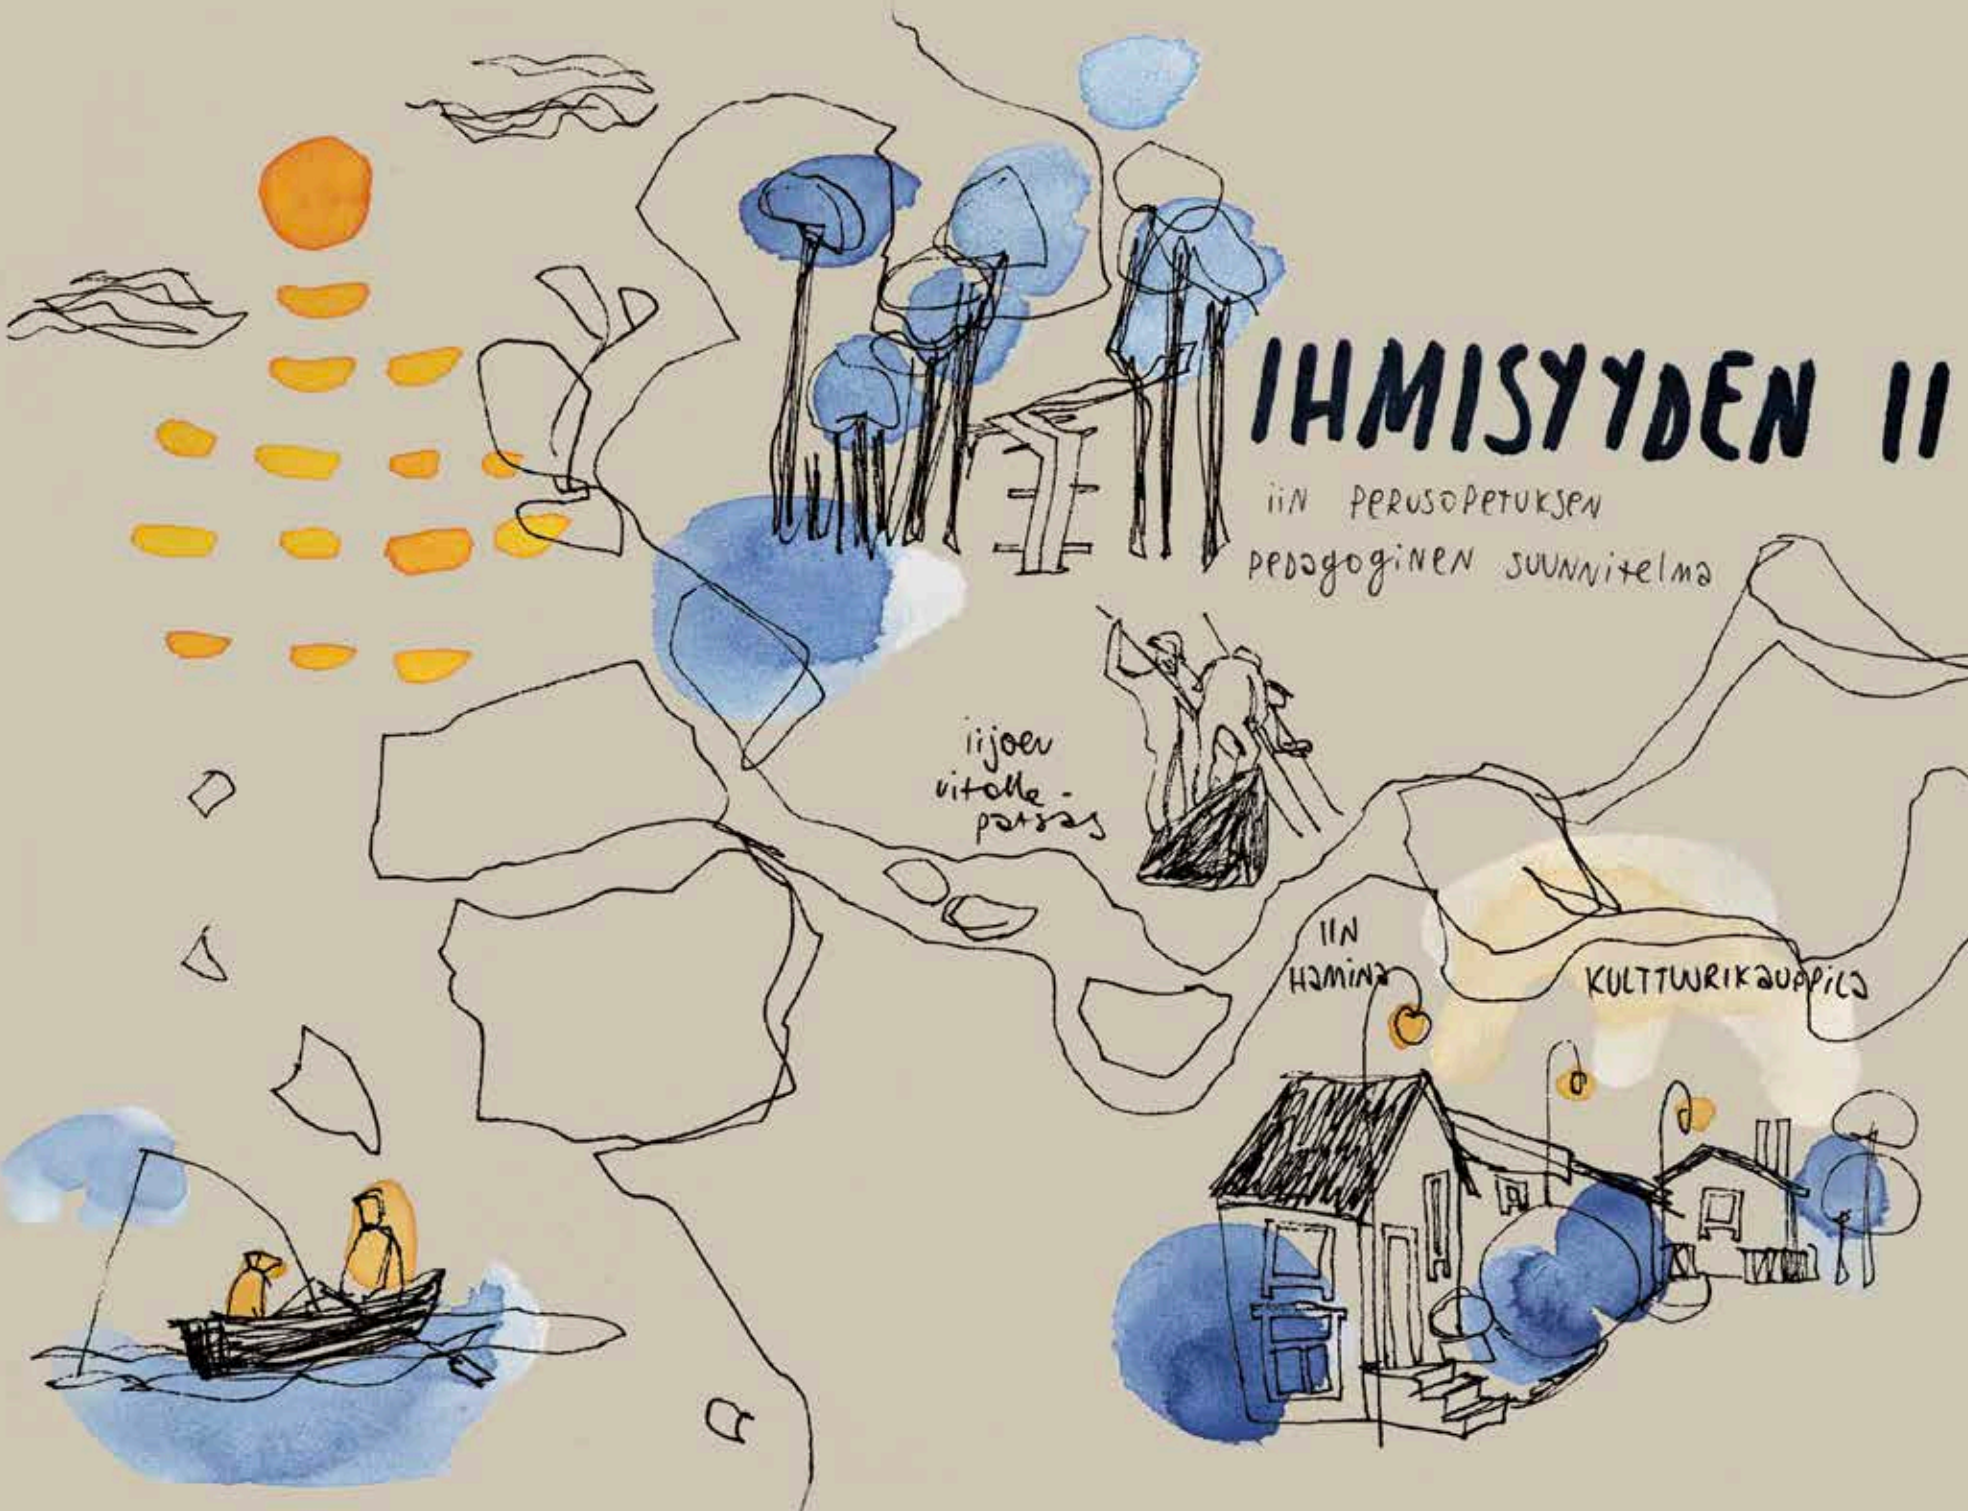 IHMISYYDEN II
iiN PERUSOPETUKSEN
PEDAGOGINEN SUUNNITELMA
iijoen
uitolle-
patsas
IIN
HAMINA
KULTTUURIKAUPPILA